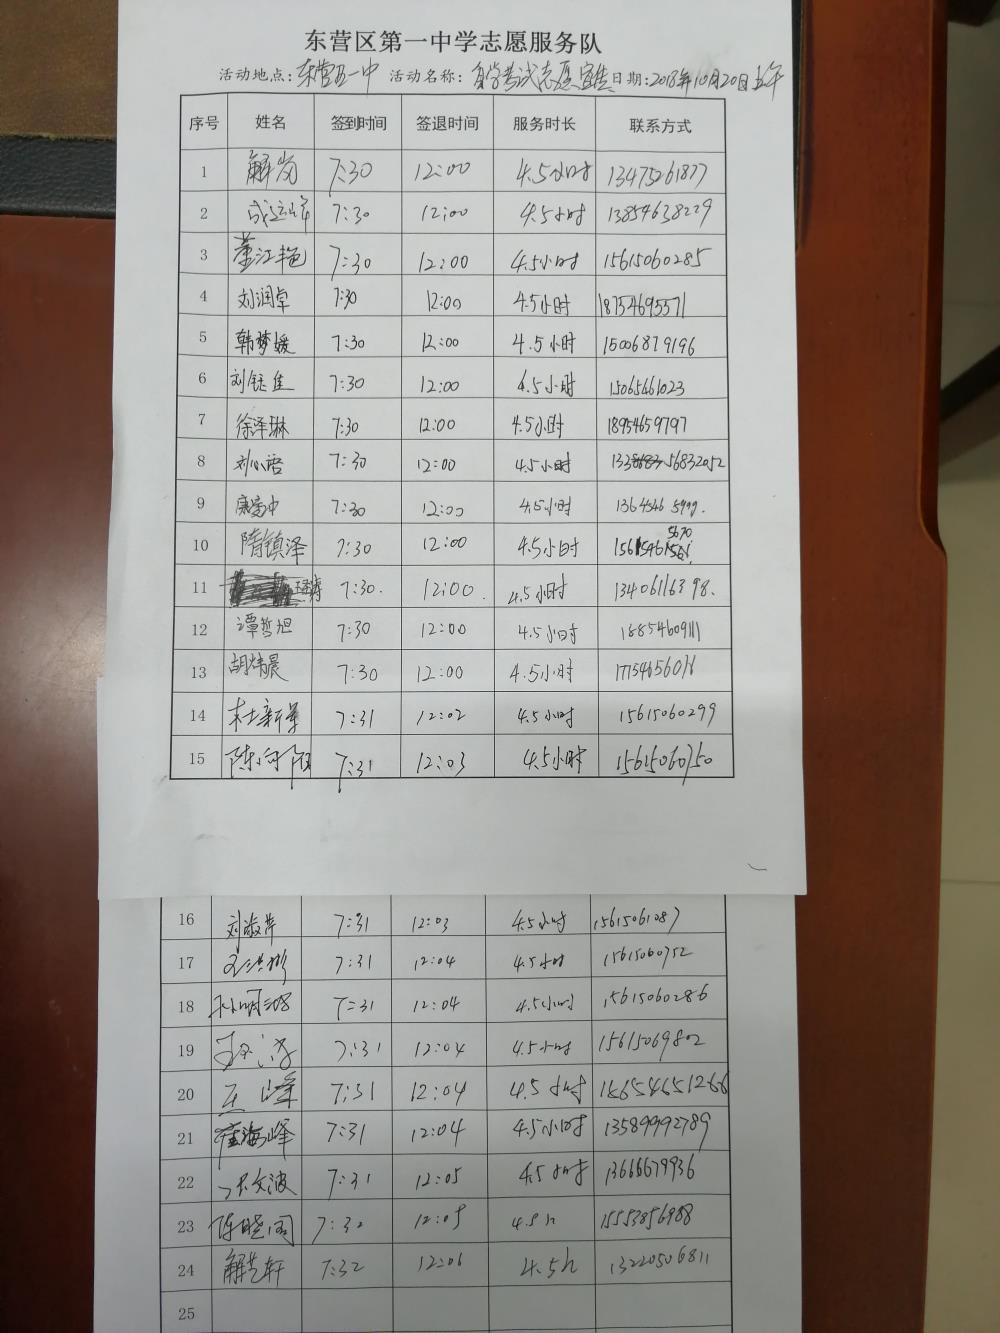 东营区第一中学志愿服务队
活动地点:东营区一中 活动名称:自学考试志愿 日期:2018年10月20日上午
序号 姓名 签到时间 签退时间 服务时长 联系方式
1 解岗 7:30 12:00 4.5小时 13475261877
2 7:30 12:00 4.5小时 13854638229
3 董江艳 7:30 12:00 4.5小时 15615060285
4 刘润卓 7:30 12:00 4.5小时 18754695571
5 韩梦媛 7:30 12:00 4.5小时 15006879196
6 刘钰佳 7:30 12:00 4.5小时 15065461023
7 徐泽琳 7:30 12:00 4.5小时 18954659797
8 刘心语 7:30 12:00 4.5小时
9 7:30 12:00 4.5小时
10 隋镇泽 7:30 12:00 4.5小时
11 7:30. 12:00. 4.5小时 13406116398.
12 谭哲旭 7:30 12:00 4.5小时
13 胡炜晨 7:30 12:00 4.5小时
14 杜新军 7:31 12:02 4.5小时 15615060299
15 7:31 12:03 4.5小时 15615060750
16 刘淑萍 7:31 12:03 4.5小时 15615061087
17 7:31 12:04 4.5小时 15615060752
18 7:31 12:04 4.5小时 15615060286
19 7:31 12:04 4.5小时 15615069802
20 王峰 7:31 12:04 4.5小时
21 崔海峰 7:31 12:04 4.5小时 13589992789
22 7:31 12:05 4.5小时 13666679936
23 陈晓阁 7:32 12:05 4.5h 15553856988
24 解芝轩 7:32 12:06 4.5h 13220506811
25